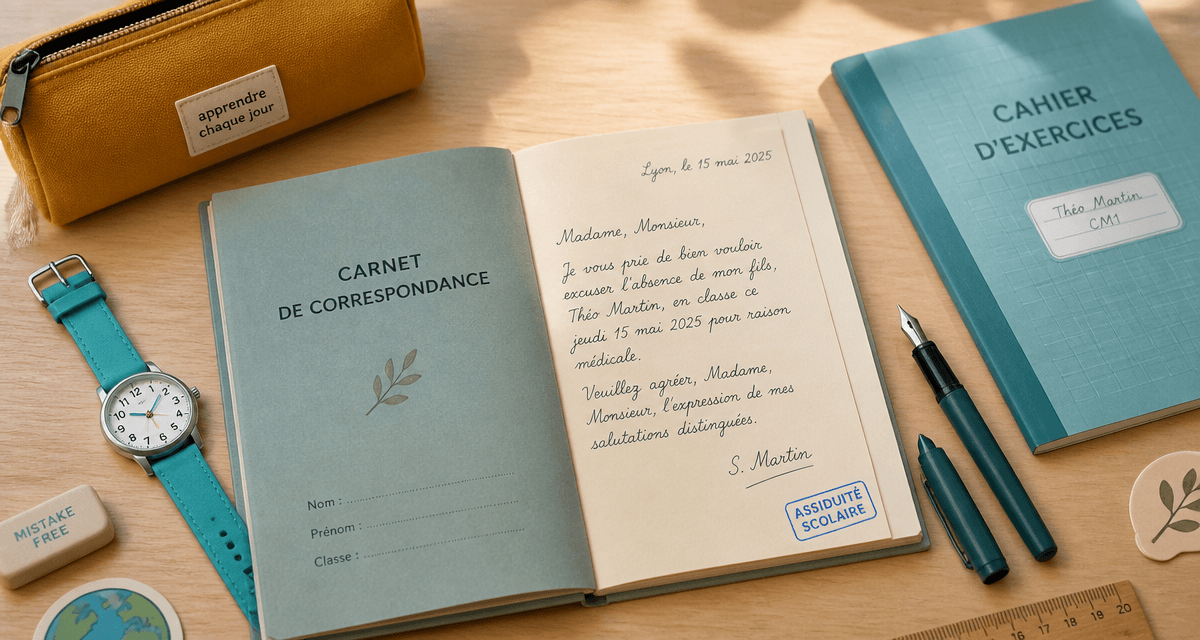 apprendre
chaque jour
CARNET
DE CORRESPONDANCE
Nom :
Prénom :
Classe :
Lyon, le 15 mai 2025
Madame, Monsieur,
Je vous prie de bien vouloir
excuser l'absence de mon fils,
Théo Martin, en classe ce
jeudi 15 mai 2025 pour raison
médicale.
Veuillez agréer, Madame,
Monsieur, l'expression de mes
salutations distinguées.
S. Martin
ASSIDUITÉ
SCOLAIRE
CAHIER
D'EXERCICES
Théo Martin
CM1
12
1
2
3
4
5
6
7
8
9
10
11
MISTAKE
FREE
16 17 18 19 20